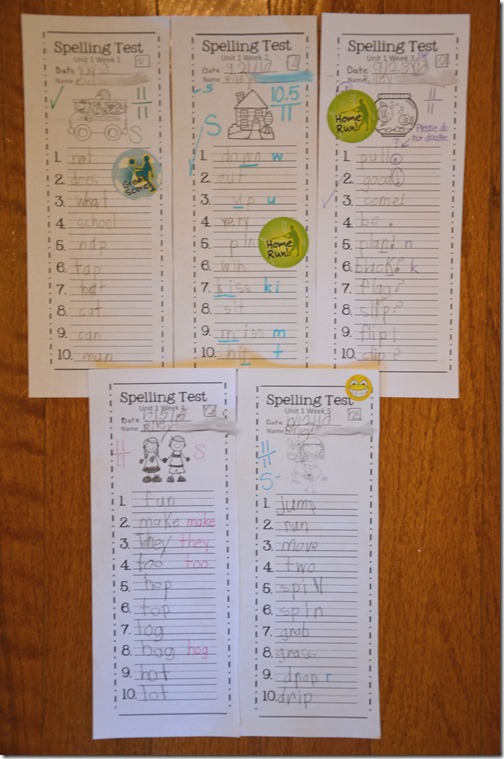 Spelling Test
Unit 1 Week 1
Date
Name
11
11
S
1. not
2. does
3. what
4. school
5. nap
6. tap
7. bat
8. cat
9. can
10. man
Spelling Test
Unit 1 Week 2
Date
Name Riley
-.5
10.5
11
S
1. down w
2. out
3. up u
4. very
5. pin
6. win
7. kiss ki
8. sit
9. miss m
10. hit t
Home Run!
Spelling Test
Unit 1 Week 3
Date
Name
11
11
Home Run!
Please do not doodle.
1. pull
2. good
3. come!
4. be.
5. plan! n
6. black? k
7. flag?
8. slip?
9. flip!
10. clip?
Spelling Test
Unit 1 Week 4
Date
Name Riley
11
11
S
1. fun
2. make make
3. they they
4. too too
5. hop
6. top
7. log
8. hog hog
9. hot
10. lot
Spelling Test
Unit 1 Week 5
Date
Name
11
11
S
1. jump
2. run
3. move
4. two
5. spill
6. spin
7. grab
8. grass
9. drop r
10. drip